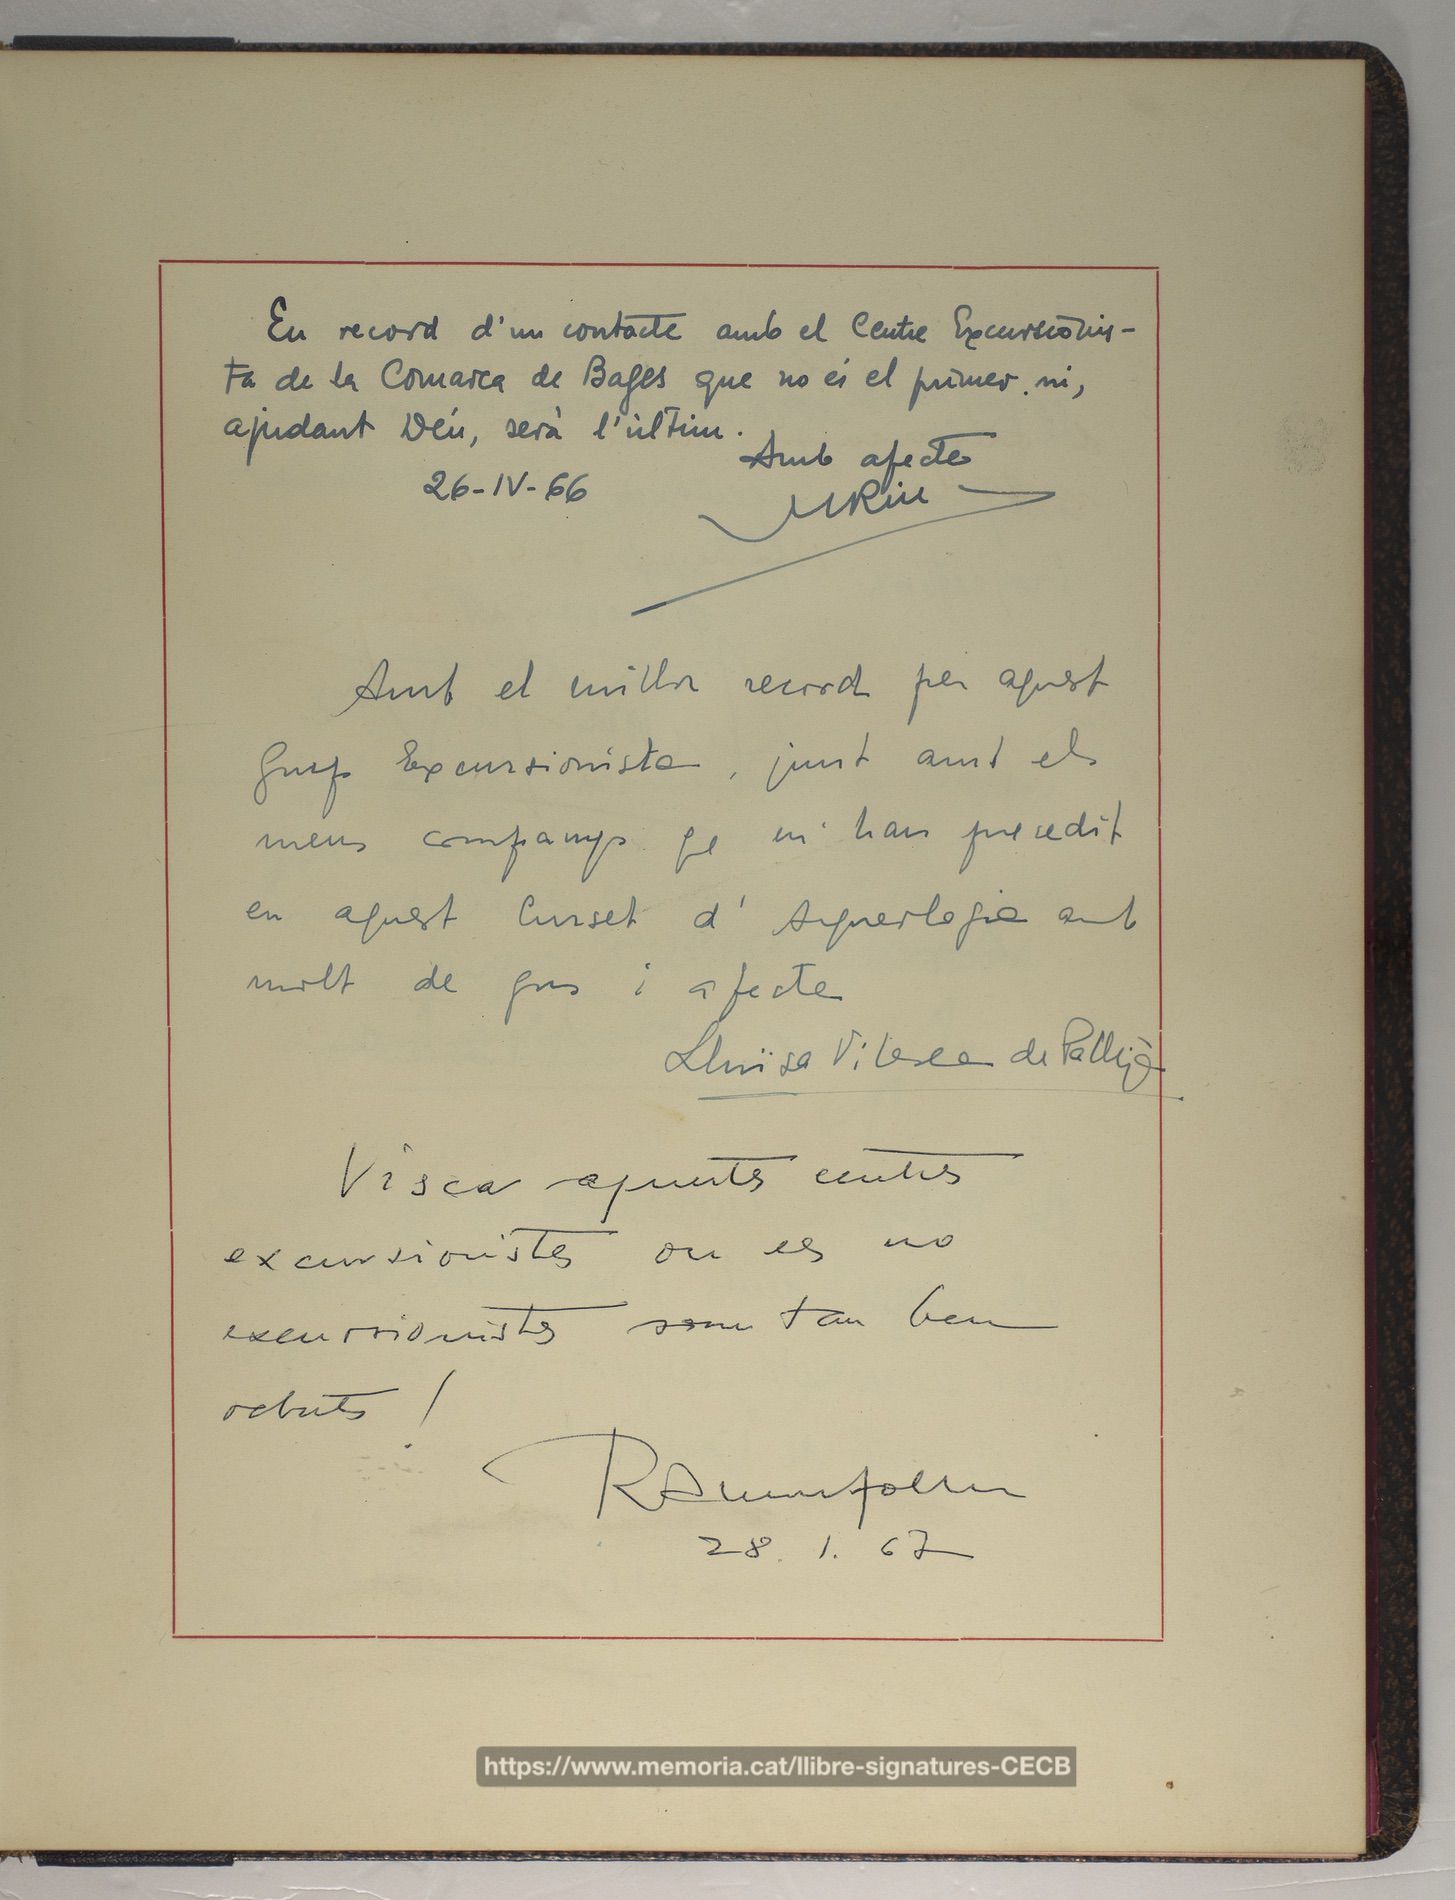 En record d'un contacte amb el Centre Excursionis-
ta de la Comarca de Bages que no és el primer ni,
ajudant Déu, serà l'últim.
Amb afecte
26-IV-66
Amb el millor record per aquest
Grup Excursionista, junt amb els
meus companys qe m'han precedit
en aquest Curset d'Arqueologia amb
molt de gus i afecte
Lluïsa Vilaseca de Pallejà
Visca aquests centres
excursionistes on es no
excursionistes som tan ben
rebuts!
28.1.67
https://www.memoria.cat/llibre-signatures-CECB